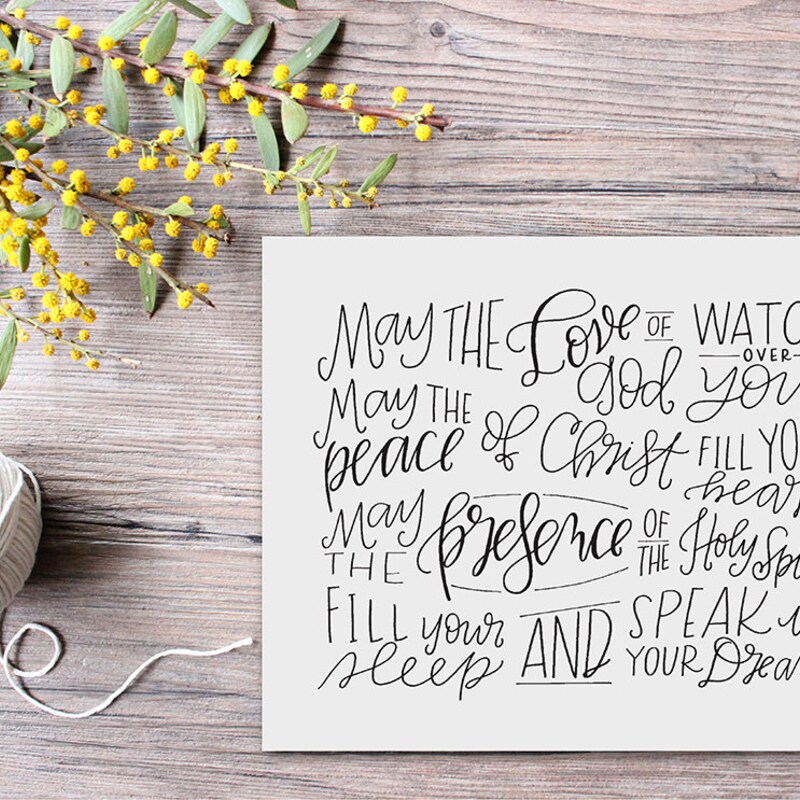 May THE Love OF God WATC OVER YOU
May THE peace of Christ FILL YO hear
May THE presence OF THE Holy Spi
FILL your sleep AND SPEAK YOUR Drea